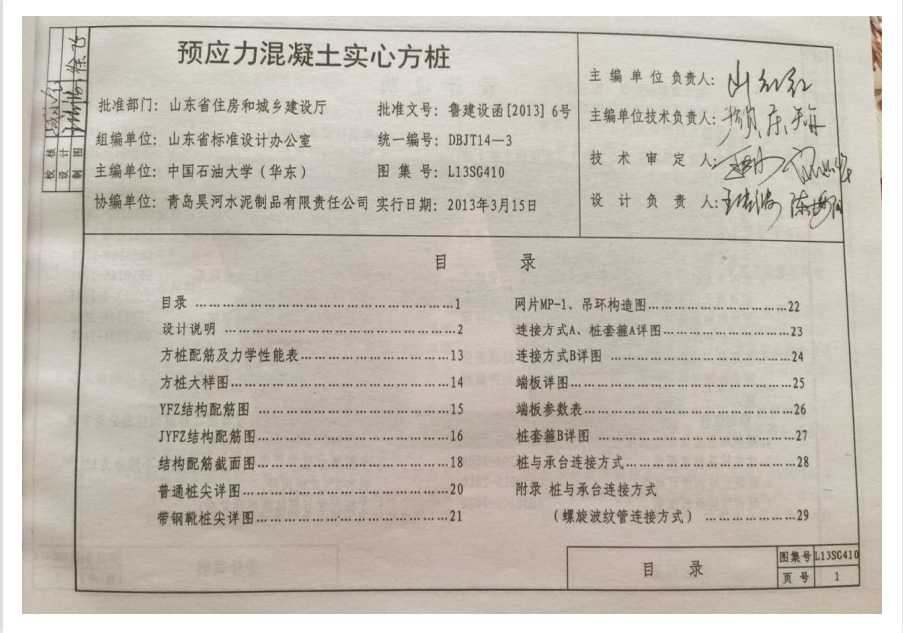 预应力混凝土实心方桩
批准部门：山东省住房和城乡建设厅 批准文号：鲁建设函[2013] 6号
组编单位：山东省标准设计办公室 统一编号：DBJT14—3
主编单位：中国石油大学（华东） 图 集 号：L13SG410
协编单位：青岛昊河水泥制品有限责任公司 实行日期：2013年3月15日
主 编 单 位 负责人：
主编单位技术负责人：
技 术 审 定 人：
设 计 负 责 人：
校 核
设 计
制 图
目 录
目录 ……………………………………1
设计说明 ………………………………2
方桩配筋及力学性能表……………………13
方桩大样图………………………………14
YFZ结构配筋图 …………………………15
JYFZ结构配筋图…………………………16
结构配筋截面图…………………………18
普通桩尖详图……………………………20
带钢靴桩尖详图…………………………21
网片MP-1、吊环构造图…………………22
连接方式A、桩套箍A详图………………23
连接方式B详图 …………………………24
端板详图…………………………………25
端板参数表………………………………26
桩套箍B详图 ……………………………27
桩与承台连接方式………………………28
附录 桩与承台连接方式
（螺旋波纹管连接方式） ……………29
目 录
图集号 L13SG410
页 号 1